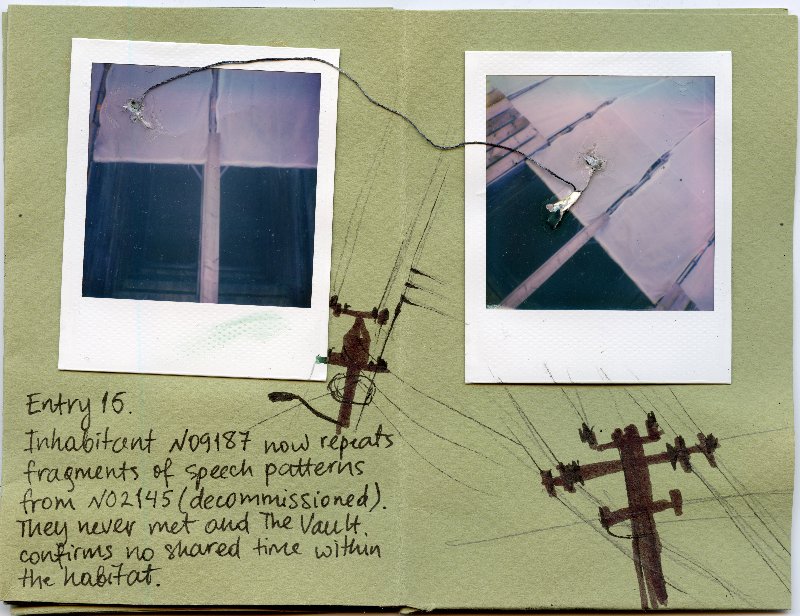 Entry 15.
Inhabitant N09187 now repeats
fragments of speech patterns
from N02145 (decommissioned).
They never met and The Vault
confirms no shared time within
the habitat.